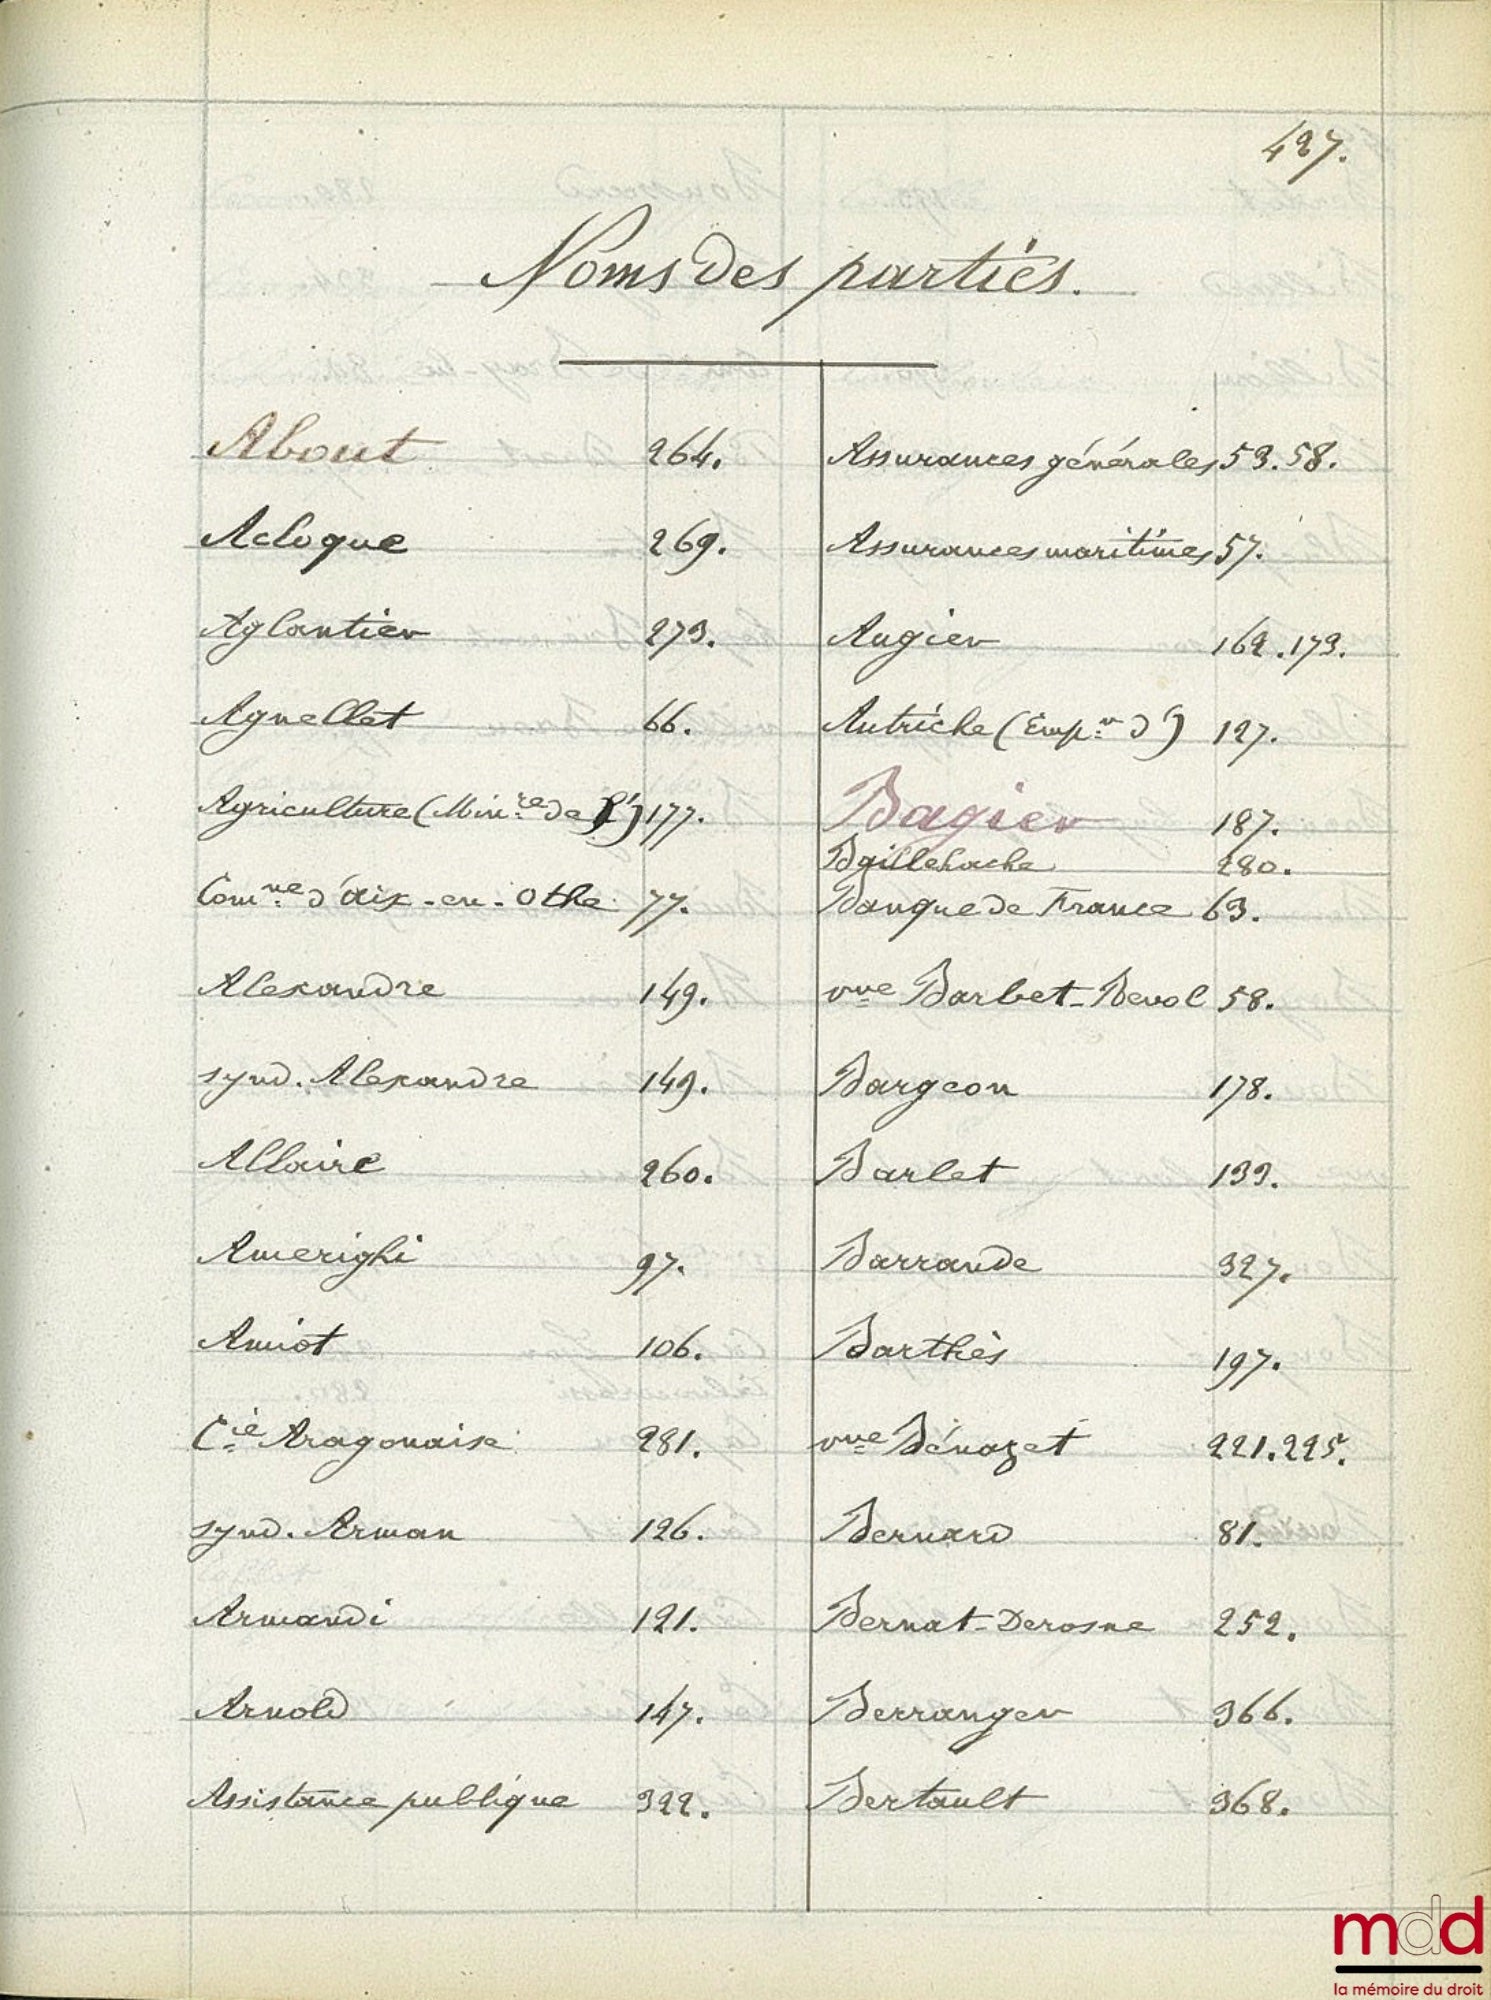 427.
Noms des parties.
About 264.
Acloque 269.
Aglantier 273.
Agnellet 66.
Agriculture (Min.re de l') 177.
Com.ne d'Aix-en-Othe 77.
Alexandre 149.
synd. Alexandre 149.
Allaire 260.
Amerighi 97.
Amiot 106.
C.ie Aragonaise 281.
synd. Arman 126.
Armandi 121.
Arnold 147.
Assistance publique 322.
Assurances générales 53.58.
Assurances maritimes 57.
Augier 162.173.
Autriche (Emp.r d') 127.
Bagier 187.
Baillehache 280.
Banque de France 63.
vve Barbet-Devol 58.
Bargeon 178.
Barlet 133.
Barrande 327.
Barthès 197.
vve Bénazet 221.225.
Bernard 81.
Bernat-Derosne 252.
Berranger 366.
Bertault 368.
mdd
la mémoire du droit